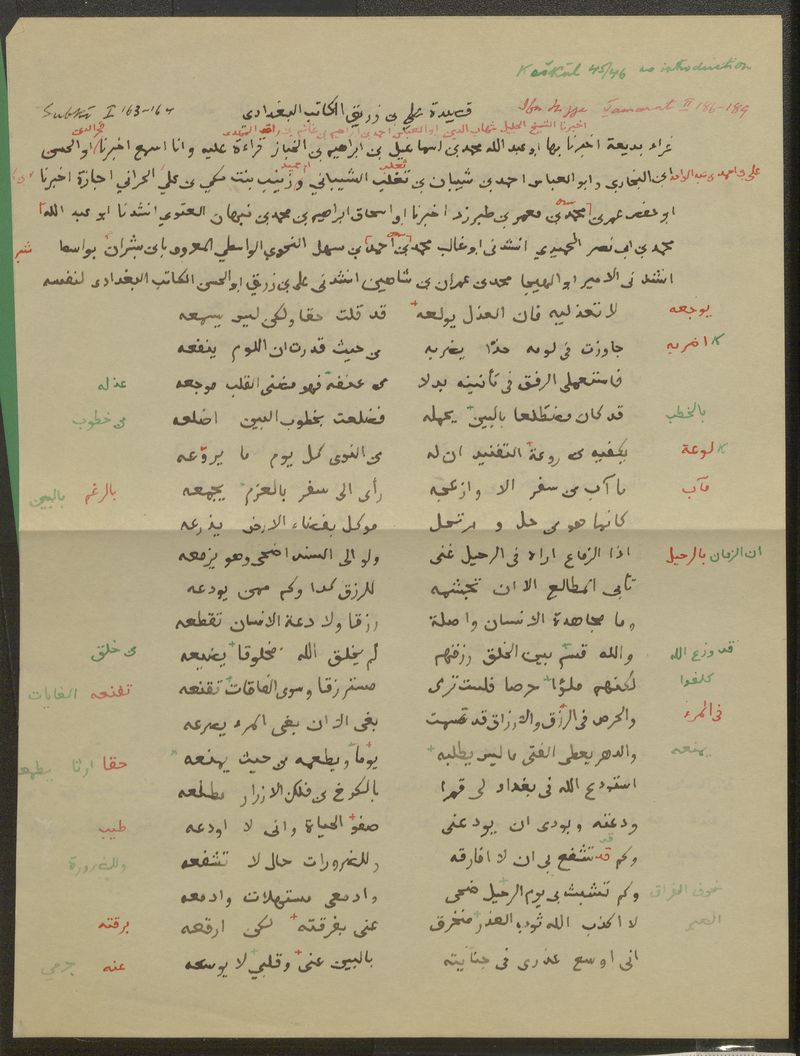 Kaškūl 45/46 no introduction
Subkī I 163-164 قصيدة علي بن زريق الكاتب البغدادي Ibn Ḥiǧǧa Tamarat II 186-189
اخبرنا الشيخ الجليل شهاب الدين ابو العباس احمد بن ابراهيم بن غانم بن
غراء بديعة اخبرنا بها ابو عبد الله محمد بن اسماعيل بن ابراهيم بن الخباز قراءة عليه وانا اسمع اخبرنا ابو الحسن
علي بن احمد بن عبد الواحد ابن البخاري وابو العباس احمد بن شيبان بن تغلب الشيباني وزينب بنت مكي بن علي الحراني اجازة اخبرنا
ابو حفص عمر بن [محمد بن] معمر بن طبرزد اخبرنا ابو اسحاق ابراهيم بن محمد بن نبهان الغنوي انشدنا ابو عبد الله
محمد بن ابي نصر الحميدي انشدني ابو غالب محمد [بن احمد] بن سهل النحوي الواسطي المعروف بابن بشران بواسط
انشدني الامير ابو الهيجا محمد بن عمران بن شاهين انشدني علي بن زريق ابو الحسن الكاتب البغدادي لنفسه
يوجعه لا تعذليه فان العذل يولعه قد قلت حقا ولكن ليس يسمعه
اضر به جاوزت في لومه حدا يضر به من حيث قدرت ان اللوم ينفعه
فاستعملي الرفق في تأنيبه بدلا من عنفه فهو مضنى القلب موجعه عذله
بالخطب قد كان مضطلعا بالبين يحمله فضلعت بخطوب البين اضلعه من خطوب
لوعة يكفيه من روعة التفنيد ان له من النوى كل يوم ما يروعه
فآب ما آب من سفر الا وازعجه رأى الى سفر بالعزم يجمعه بالرغم بالبين
كانما هو من حل و مرتحل موكل بفضاء الارض يذرعه
ان الزمان بالرحيل اذا الزماع اراه في الرحيل غنى ولو الى السند اضحى وهو يزمعه
تأبى المطالع الا ان تجشمه للرزق كدا وكم ممن يودعه
وما مجاهدة الانسان واصلة رزقا ولا دعة الانسان تقطعه
قد وزع الله والله قسم بين الخلق رزقهم لم يخلق الله مخلوقا يضيعه من خلق
كلفوا لكنهم ملؤا حرصا فلست ترى مسترزقا وسوى الفاقات تقنعه تقنعه الغايات
في المرء والحرص في الرزق والارزاق قد قسمت بغي الا ان بغي المرء يصرعه
يمنعه والدهر يعطي الفتى ما ليس يطلبه يوما ويطعمه من حيث يمنعه حقا ارثا
استودع الله في بغداد لي قمرا بالكرخ من فلك الازرار مطلعه
ودعته وبودي ان يودعني صفو الحياة واني لا اودعه طيب
وكم قد تشفع بي ان لا افارقه وللضرورات حال لا تشفعه وللضرورة
خوف الفراق وكم تشبث بي يوم الرحيل ضحى وادمعي مستهلات وادمعه
لا اكذب الله ثوب العذر منخرق عني بفرقته لكن ارقعه برقته
اني اوسع عذري في جنايته بالبين عني وقلبي لا يوسعه عنه جرمي